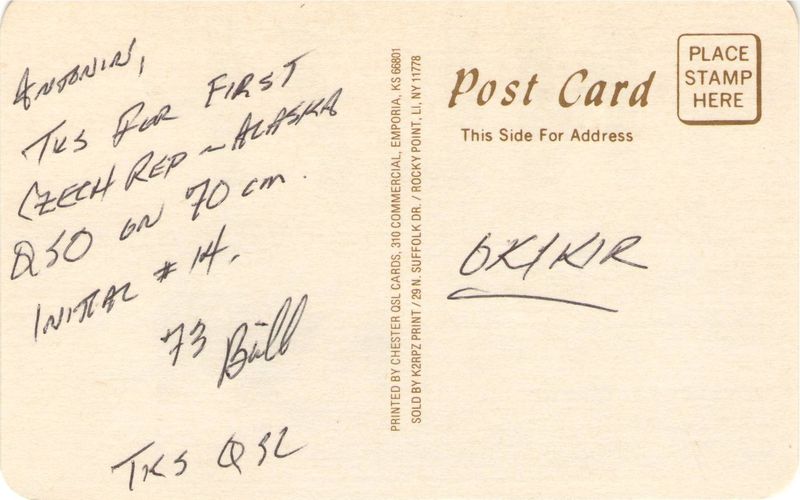 ANTONIN,
TKS FOR FIRST
CZECH REP ~ ALASKA
QSO ON 70 cm.
INITIAL # 14.
73 Bill
TKS QSL
PRINTED BY CHESTER QSL CARDS, 310 COMMERCIAL, EMPORIA, KS 66801
SOLD BY K2RPZ PRINT / 29 N. SUFFOLK DR. / ROCKY POINT, LI, NY 11778
Post Card
This Side For Address
PLACE
STAMP
HERE
OK1KIR